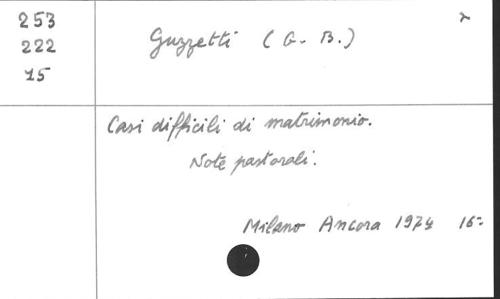 253
222
15
Guzzetti (G. B.)
Casi difficili di matrimonio.
Note pastorali.
Milano Ancora 1974 16=